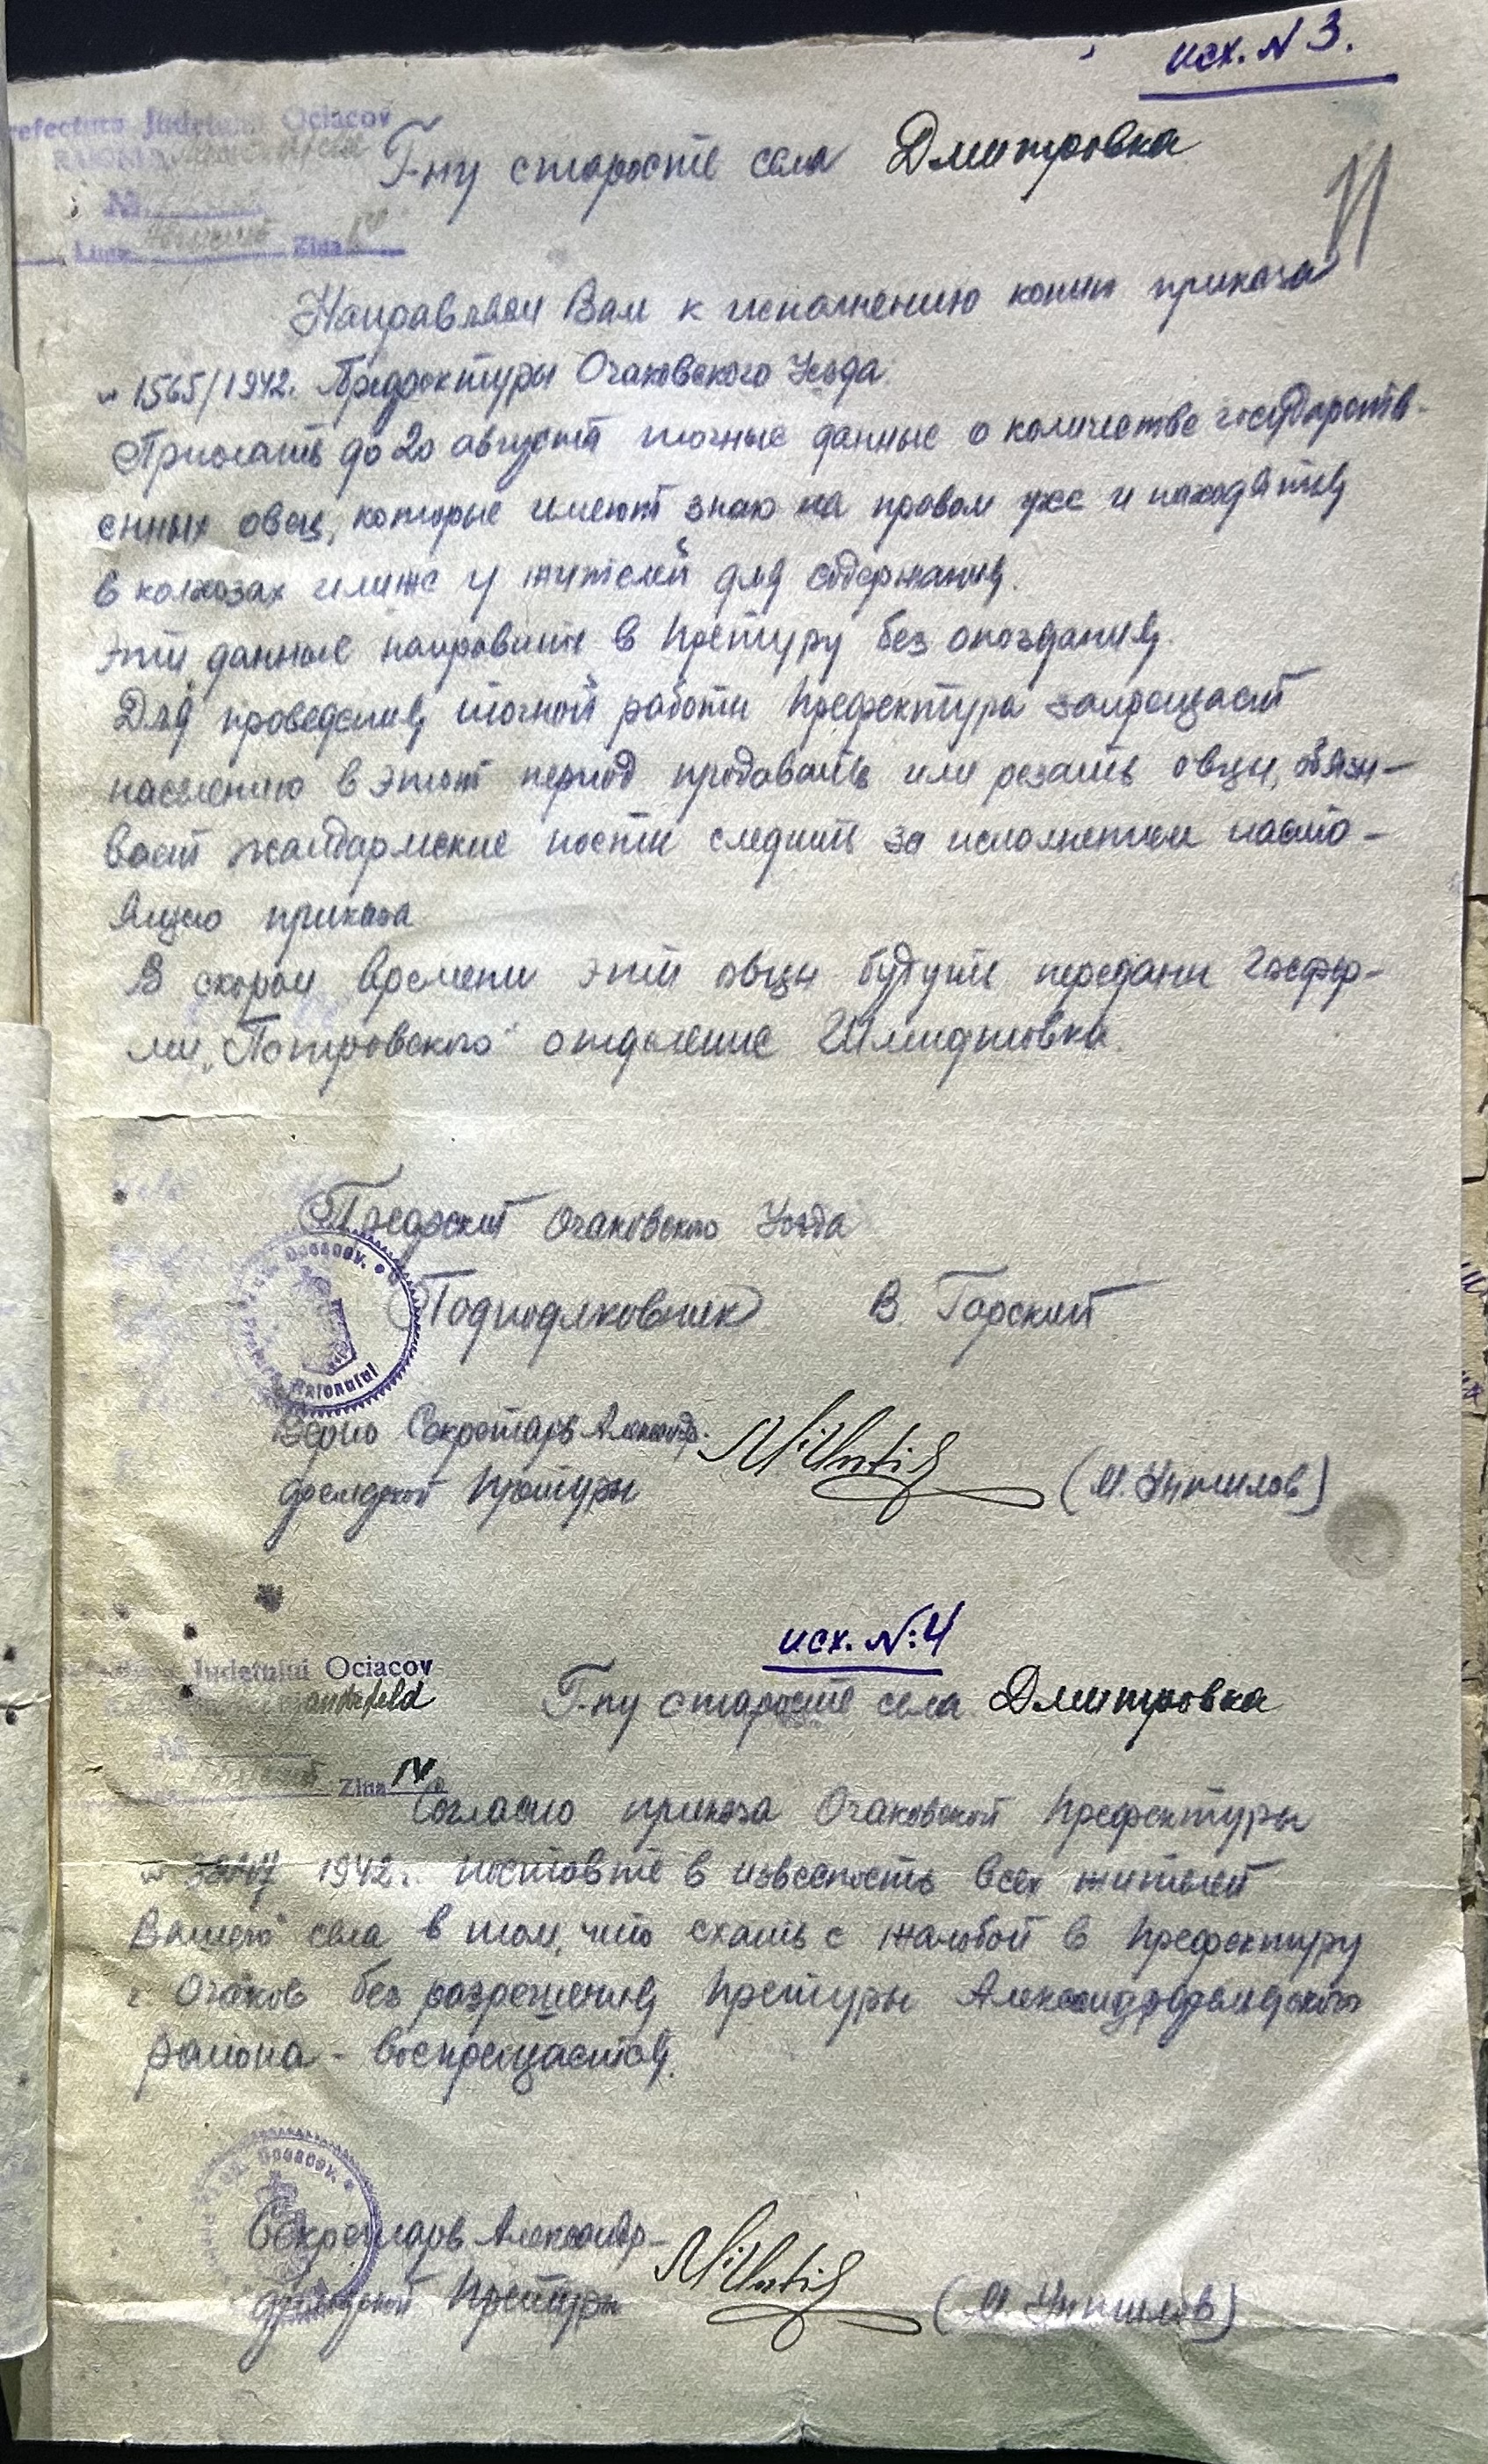 исх. N 3.
Prefectura Judetului Ociacov
Г-ну старосте села Дмитровка
No
11
Luna Август Ziua
Направляем Вам к исполнению копию приказа
№ 1565/1942г. Префектуры Очаковского Уезда.
Прислать до 20 августа точные данные о количестве государств-
енных овец, которые имеют знак на правом ухе и находятся
в колхозах или же у жителей для содержания.
Эти данные направите в Претуру без опоздания.
Для проведения точной работы Префектура запрещает
населению в этот период продавать или резать овцы, обязы-
вает жандармские посты следить за исполнением насто-
ящего приказа
В скором времени эти овцы будуть переданы госфер-
мы „Петровского" отделение Шмидтовка.
Префект Очаковского Уезда
Подполковник В. Горский
Верно Секретарь Александр-
фельдской Претуры (М. )
исх. N:4
Judetului Ociacov
Г-ну старосте села Дмитровка
Ziua
Согласно приказа Очаковской Префектуры
№ 1942г. поставте в известность всех жителей
Вашего села в том, что ехать с жалобой в Префектуру
г. Очаков без разрешения Претуры Александрфельдского
района - воспрещается.
Секретарь Александр-
фельдской Претуры (М. )